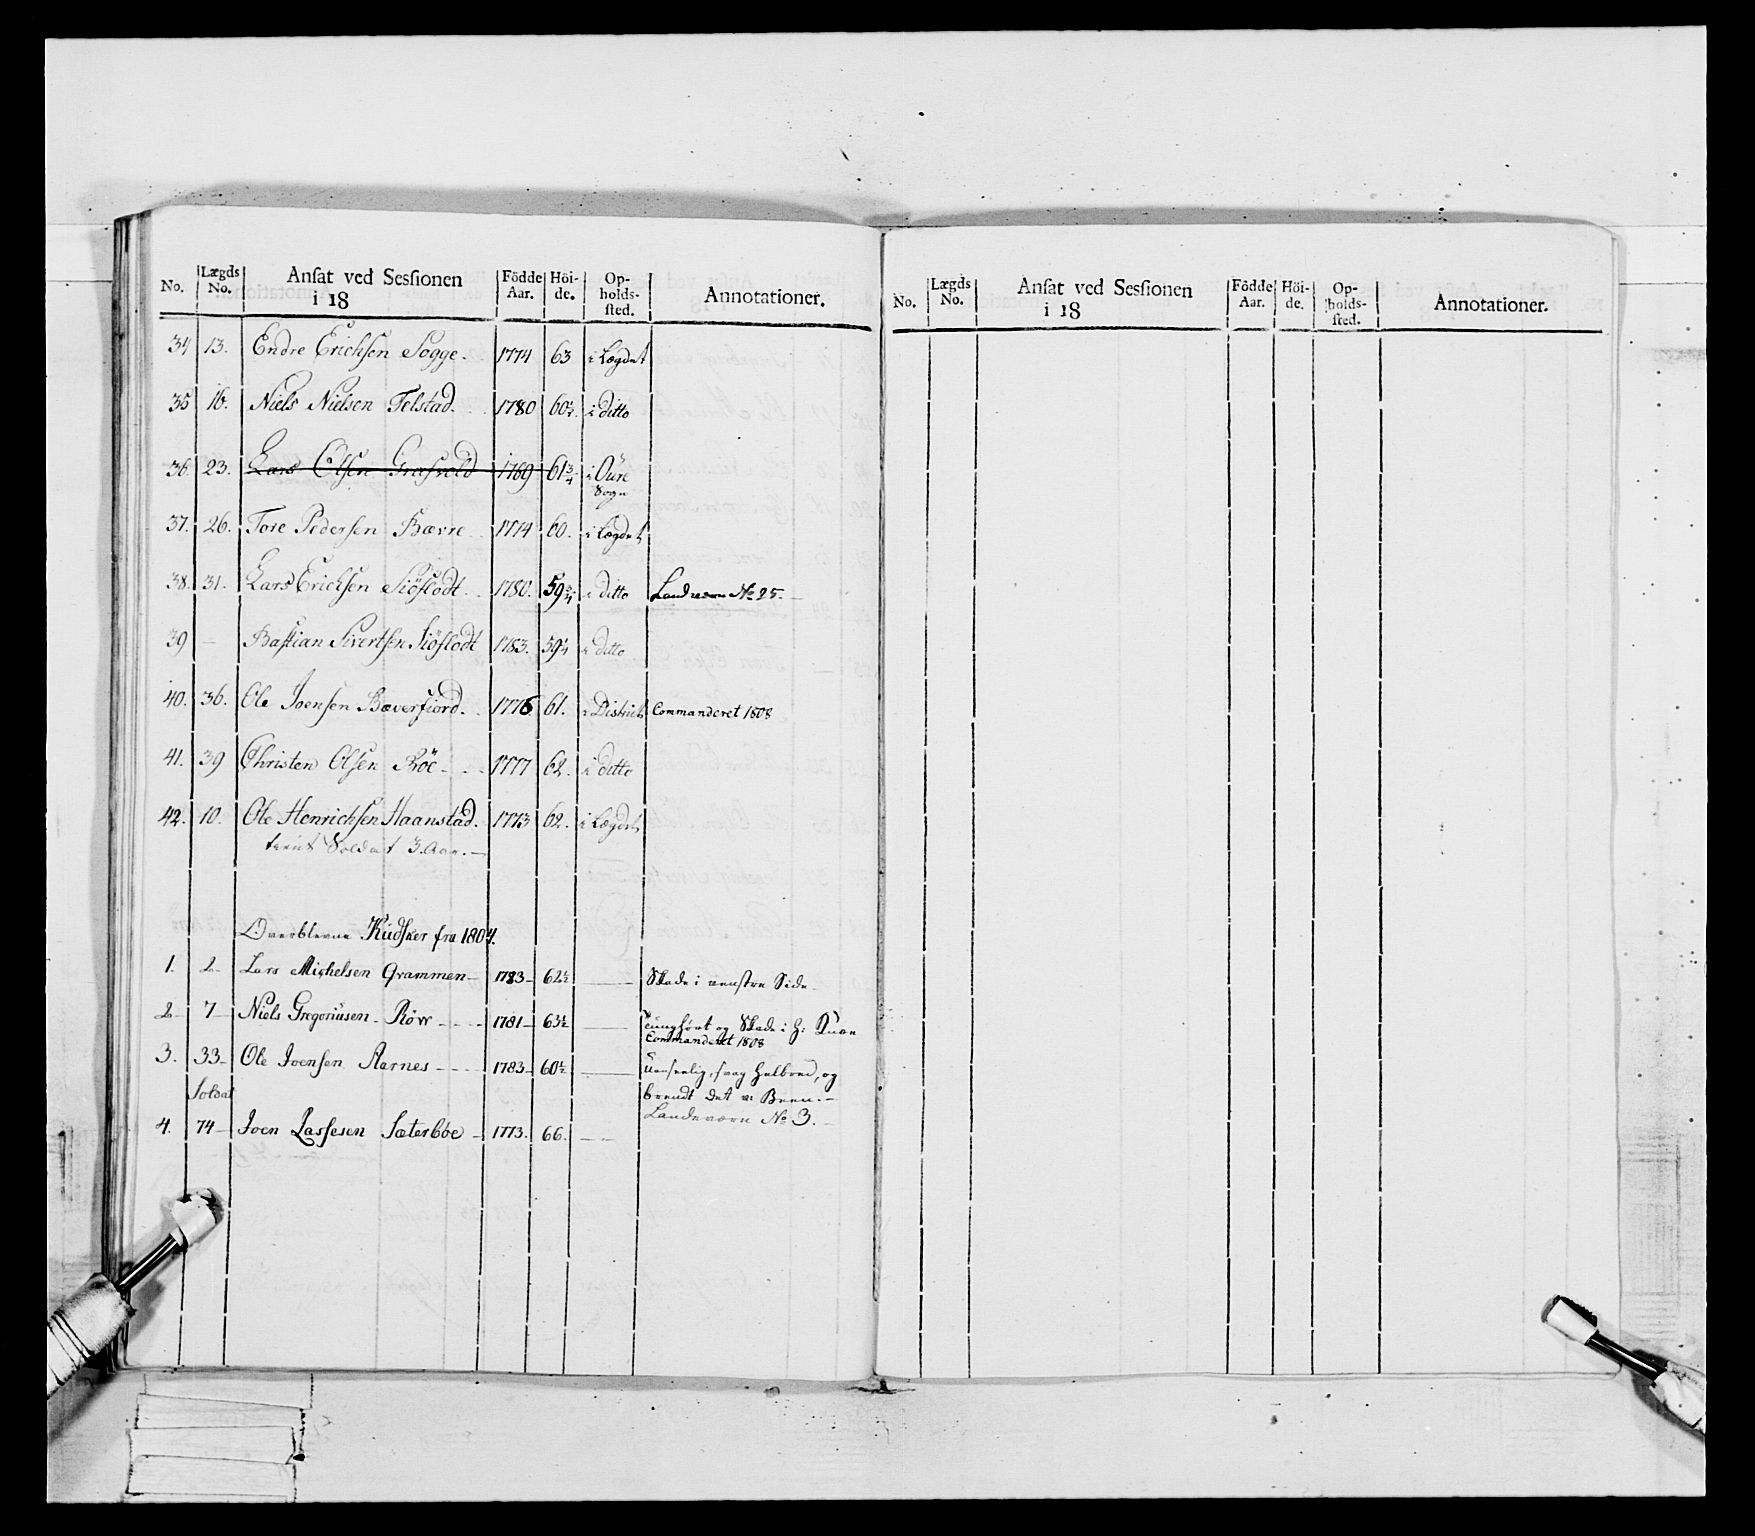 No. Lægds No. Ansat ved Sessionen i 18 Födde Aar. Höi-de. Op-holds-sted. Annotationer.
34 13. Endre Erichsen Sogge. 1774 63 i Lægdet
35 16. Niels Nielsen Telstad. 1780 60½. i ditto
36. 23. Lars Olsen Grasvold 1769 61¾ i Öure Sogn
37. 26. Tore Pedersen Bævre 1774 60. i Lægdet
38. 31. Lars Erichsen Siöflodt. 1780. 59¾ i ditto Landværn No 25.
39 — Bastian Sivertsen Siöflodt 1783. 59½ i ditto
40. 36. Ole Joensen Bæverfiord. 1776 61. i District Commanderet 1808
41. 39 Christen Olsen Röe 1777 62. i ditto
42. 10. Ole Henrichsen Haanstad. 1773 62. i Lægdet
tient Soldat 3. Aar.
Overblevne Kudsker fra 1804.
1. 2 Lars Michelsen Qvammen 1783 62½ Skade i venstre Side
2 7 Niels Gregoriusen Röv 1781 63½ tunghört og Skade i h: Knæ
Commanderet 1808
3. 33 Ole Joensen Aarnes 1783 60½ Uanseelig, svag Helbred, og
Soldat brendt det v: Been.
Landeværn No 3.
4. 74 Joen Lassesen Sæterböe 1773. 66.
No. Lægds No. Ansat ved Sessionen i 18 Födde Aar. Höi-de. Op-holds-sted. Annotationer.